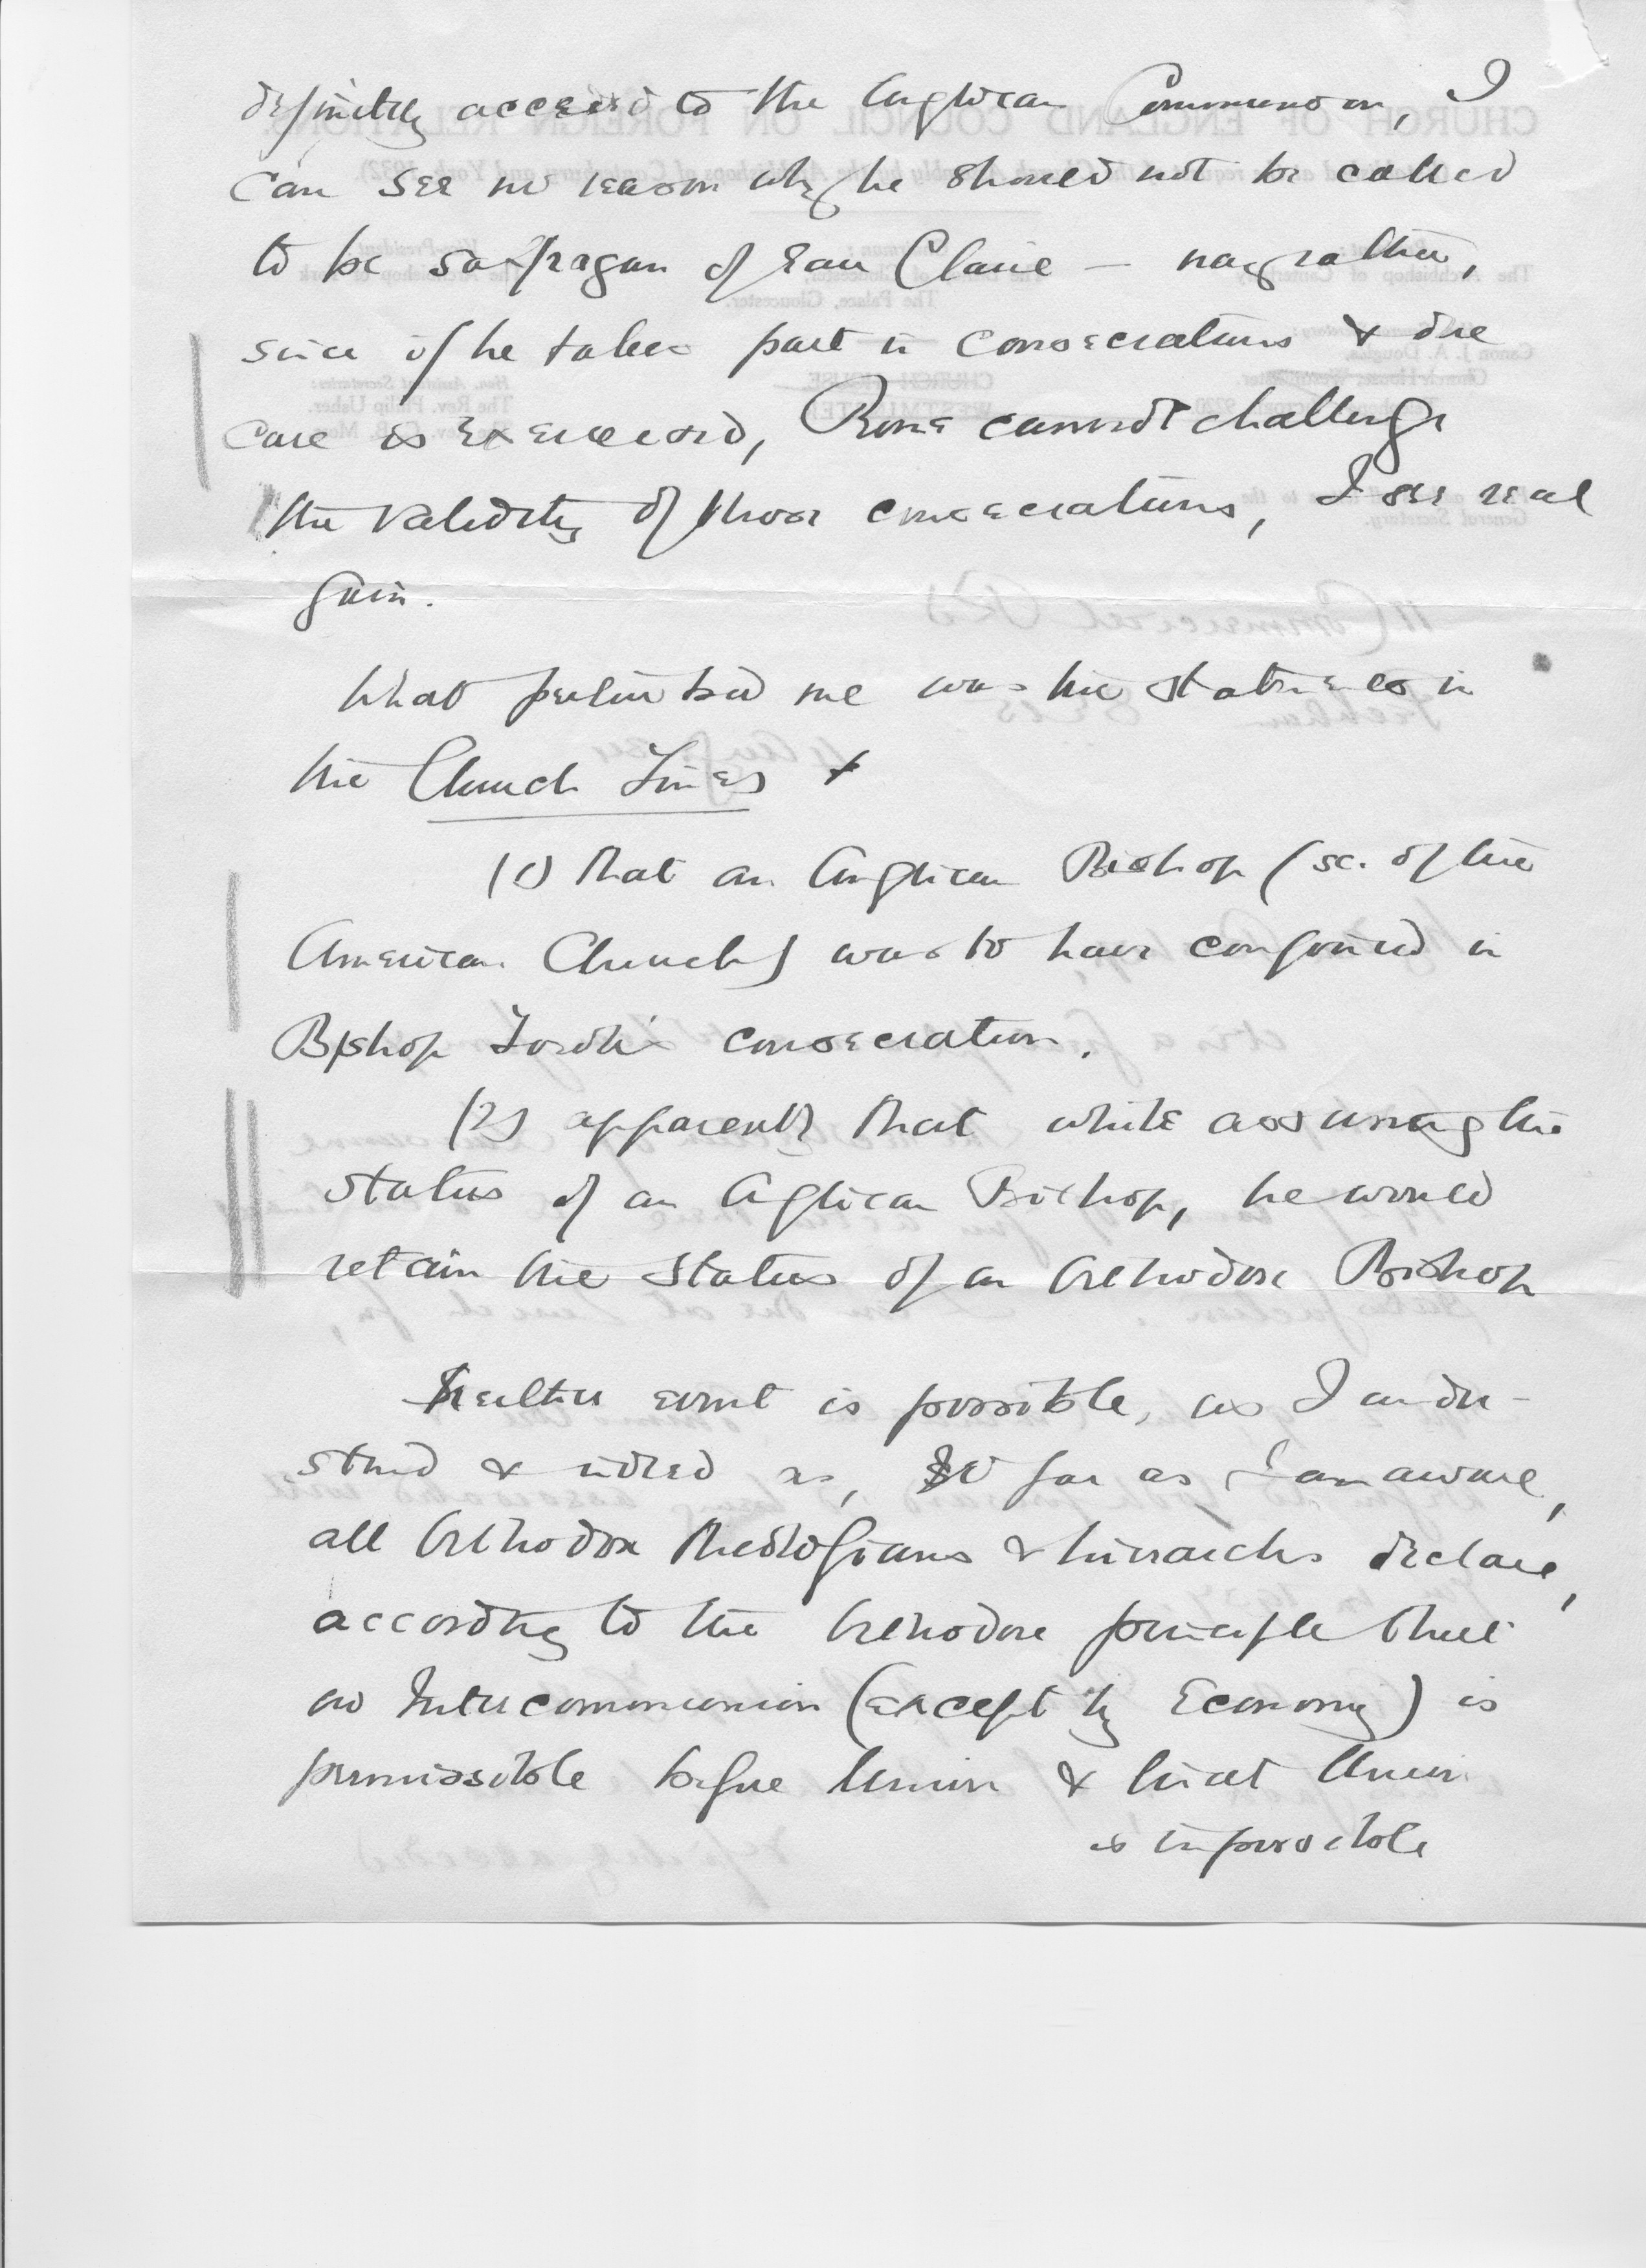 definitely acceded to the Anglican Communion, I
can see no reason why he should not be called
to be suffragan of Eau Claire — nay rather,
since if he takes part in consecrations & due
care is exercised, Rome cannot challenge
the validity of those consecrations, I see real
gain.
What perturbed me was the statement in
the Church Times
(1) that an Anglican Bishop (sc. of the
American Church) was to have conjoined in
Bishop consecration.
(2) apparently that while assuming the
status of an Aglican Bishop, he would
retain the status of an Orthodox Bishop
Neither event is possible, as I under-
stand & indeed as, so far as I am aware,
all Orthodox theologians & hierarchs declare,
according to the Orthodox principle that
no Intercommunion (except by Economy) is
permissible before Union & that Union
is impossible
CHURCH OF ENGLAND COUNCIL ON FOREIGN RELATIONS